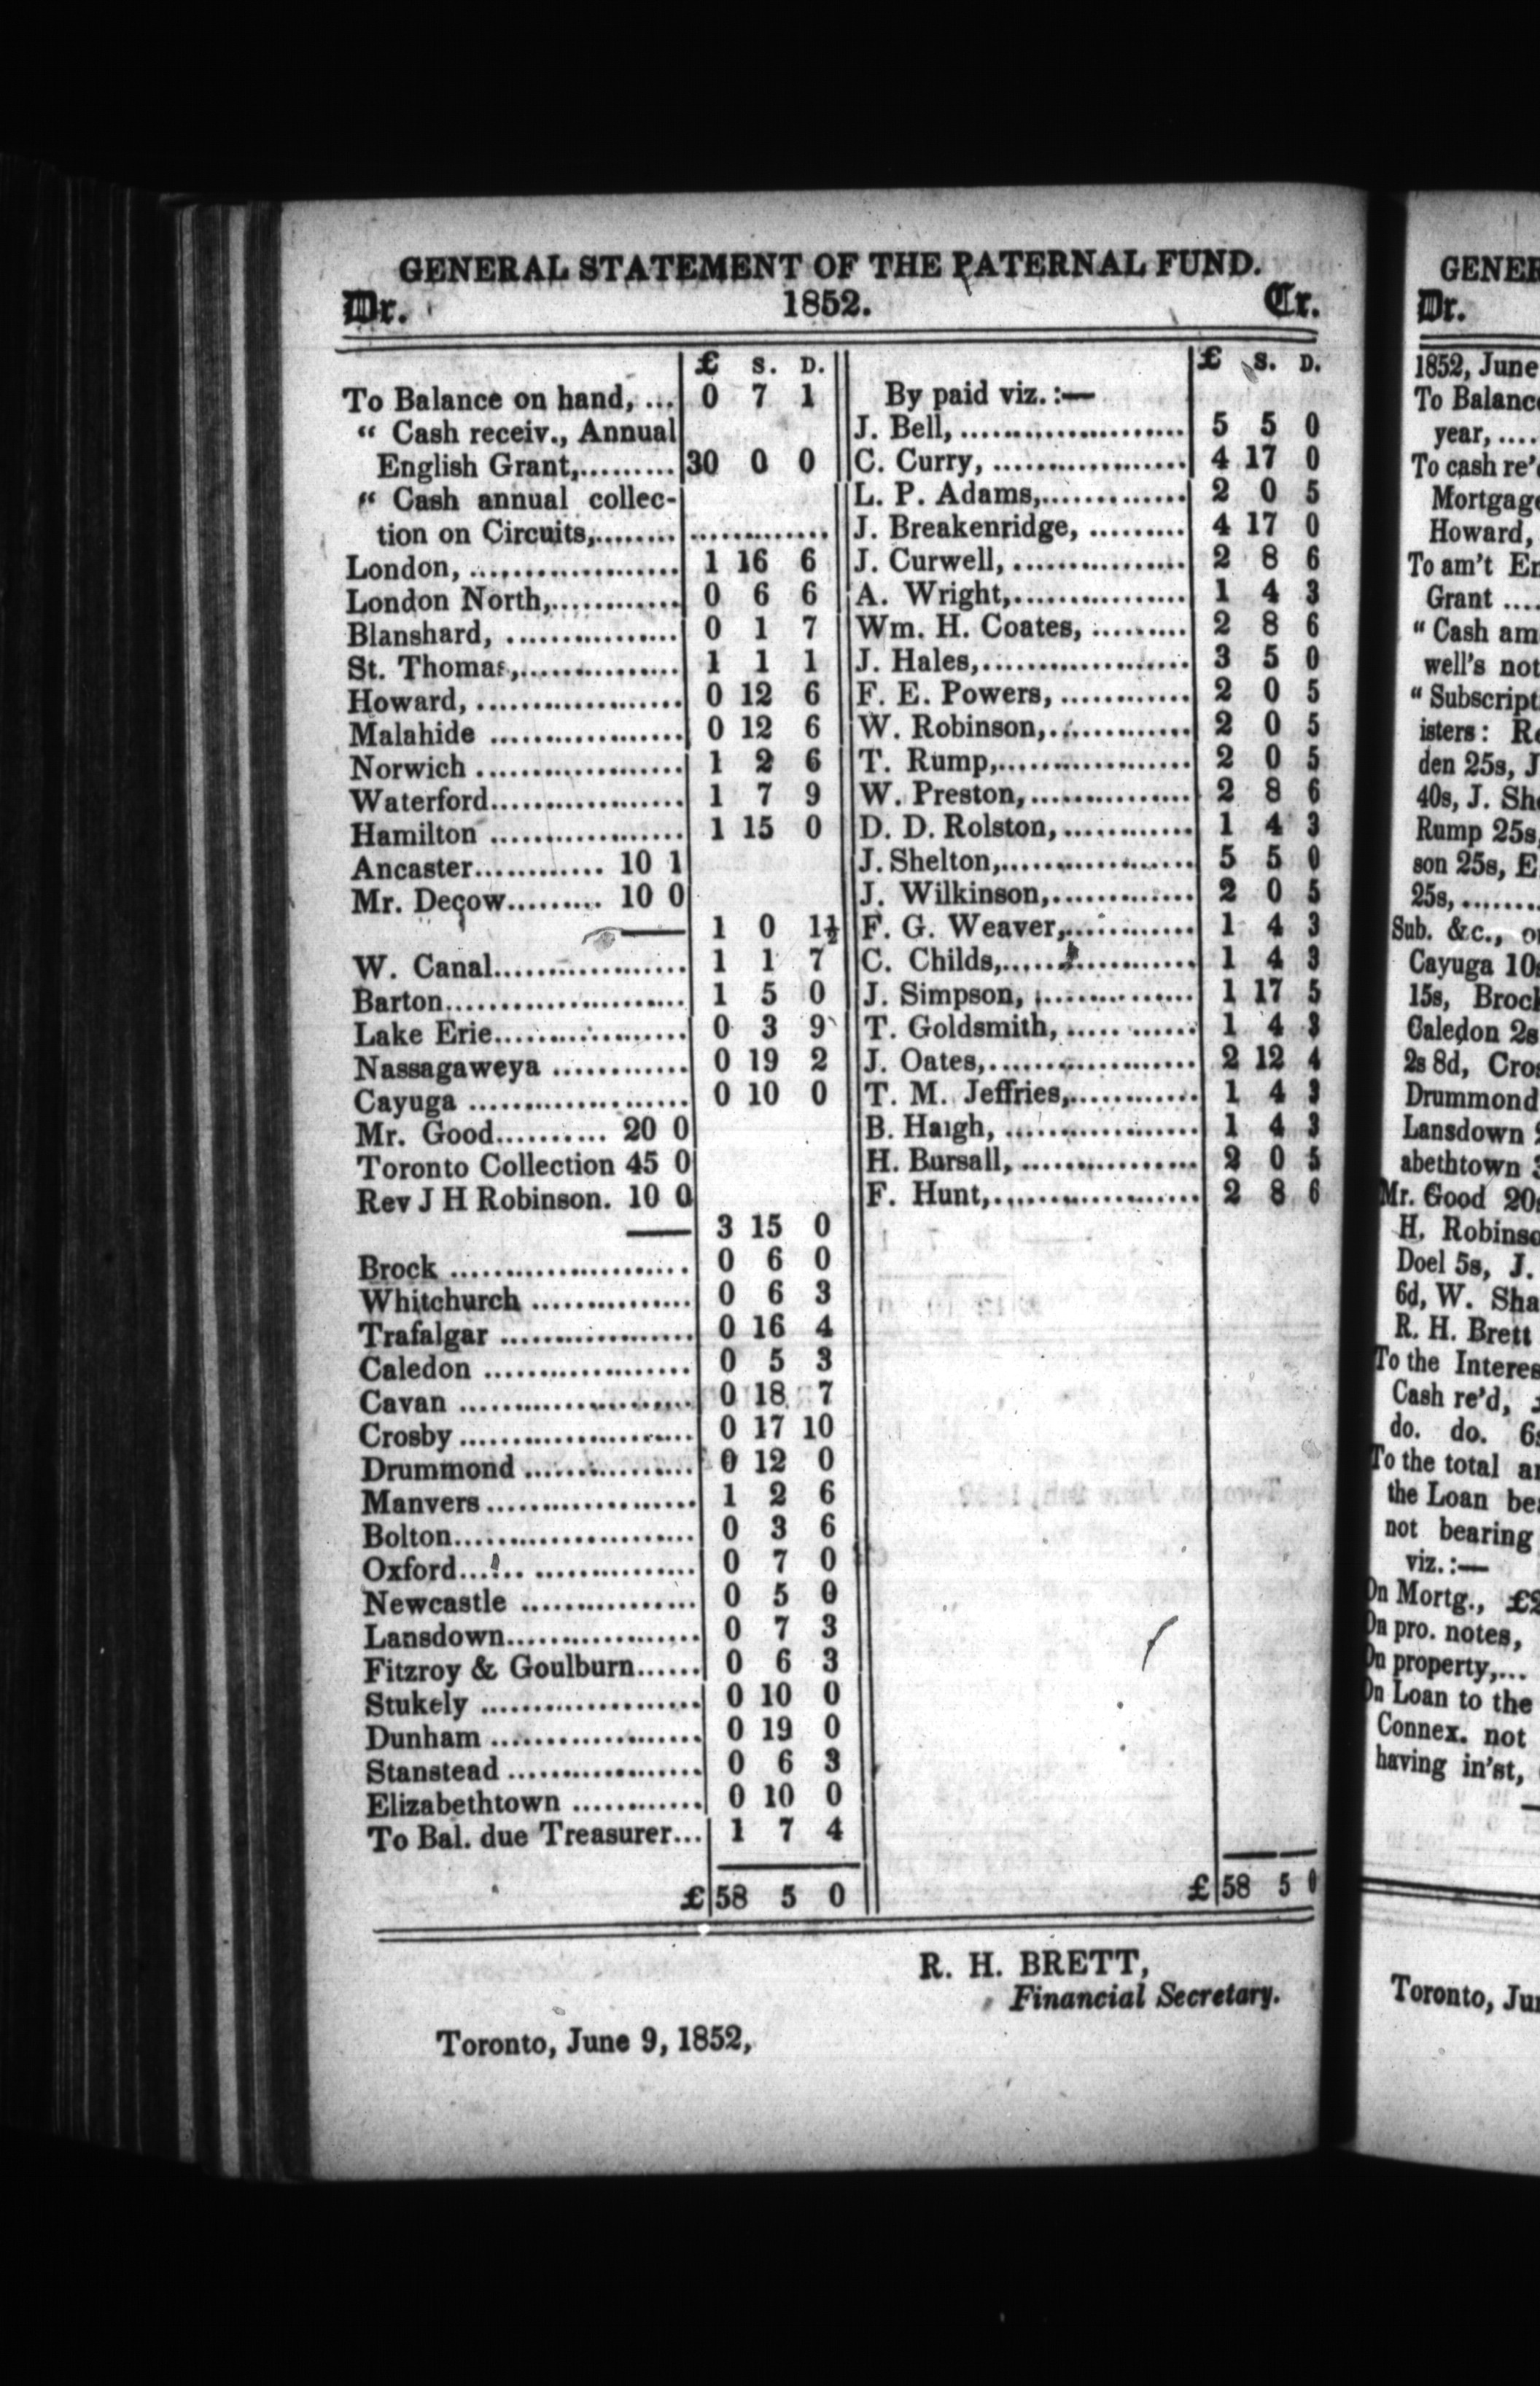 GENERAL STATEMENT OF THE PATERNAL FUND.
Dr. 1852. Cr.
£ S. D.
To Balance on hand, ... 0 7 1
“ Cash receiv., Annual
English Grant,......... 30 0 0
“ Cash annual collec-
tion on Circuits,........ .............
London, .................... 1 16 6
London North,............ 0 6 6
Blanshard, ................ 0 1 7
St. Thomas,............... 1 1 1
Howard, ................... 0 12 6
Malahide .................. 0 12 6
Norwich ................... 1 2 6
Waterford.................. 1 7 9
Hamilton .................. 1 15 0
Ancaster............ 10 1
Mr. Decow......... 10 0
1 0 1½
W. Canal.................. 1 1 7
Barton...................... 1 5 0
Lake Erie.................. 0 3 9
Nassagaweya ............ 0 19 2
Cayuga .................... 0 10 0
Mr. Good.......... 20 0
Toronto Collection 45 0
Rev J H Robinson. 10 0
3 15 0
Brock ...................... 0 6 0
Whitchurch ............... 0 6 3
Trafalgar .................. 0 16 4
Caledon ................... 0 5 3
Cavan ...................... 0 18 7
Crosby ...................... 0 17 10
Drummond ................ 0 12 0
Manvers .................... 1 2 6
Bolton....................... 0 3 6
Oxford...:.. ............... 0 7 0
Newcastle ................ 0 5 0
Lansdown.................. 0 7 3
Fitzroy & Goulburn...... 0 6 3
Stukely .................... 0 10 0
Dunham ................... 0 19 0
Stanstead .................. 0 6 3
Elizabethtown ............ 0 10 0
To Bal. due Treasurer... 1 7 4
£ 58 5 0
£ S. D.
By paid viz. :—
J. Bell, ...................... 5 5 0
C. Curry, ................... 4 17 0
L. P. Adams,.............. 2 0 5
J. Breakenridge, ......... 4 17 0
J. Curwell, ................ 2 8 6
A. Wright,................. 1 4 3
Wm. H. Coates, ......... 2 8 6
J. Hales,.................... 3 5 0
F. E. Powers, ............ 2 0 5
W. Robinson,............. 2 0 5
T. Rump,.................. 2 0 5
W. Preston,............... 2 8 6
D. D. Rolston,............ 1 4 3
J. Shelton,.................. 5 5 0
J. Wilkinson,.............. 2 0 5
F. G. Weaver,............ 1 4 3
C. Childs,.................. 1 4 3
J. Simpson, ............... 1 17 5
T. Goldsmith, ..... ...... 1 4 3
J. Oates,.................... 2 12 4
T. M. Jeffries,............ 1 4 3
B. Haigh, .................. 1 4 3
H. Bursall, ................ 2 0 5
F. Hunt,.................... 2 8 6
£ 58 5 0
R. H. BRETT,
Financial Secretary.
Toronto, June 9, 1852,
Dr.
1852, June
To
year, ....
To cash re'
Howard,
To am't
Grant ....
“ Cash
well's not
“
isters:
den 25s, J
40s, J.
Rump 25s,
son 25s, E
25s,.......
Sub. &c.,
Cayuga
15s,
Caledon 2s
2s 8d,
Drummond
Lansdown
abethtown
Mr. Good
H.
Doel 5s, J.
6d, W.
R. H. Brett
To the
Cash re'd,
do. do.
To the total
the Loan
not bearing
viz. :—
On Mortg.,
On pro. notes,
On property,...
On Loan to the
Connex. not
having in'st,
Toronto,